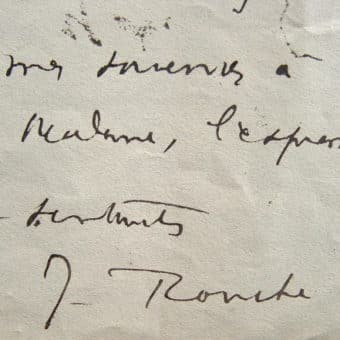 mes souvenirs à
Madame, l'expres
sentiments
J. Rouché